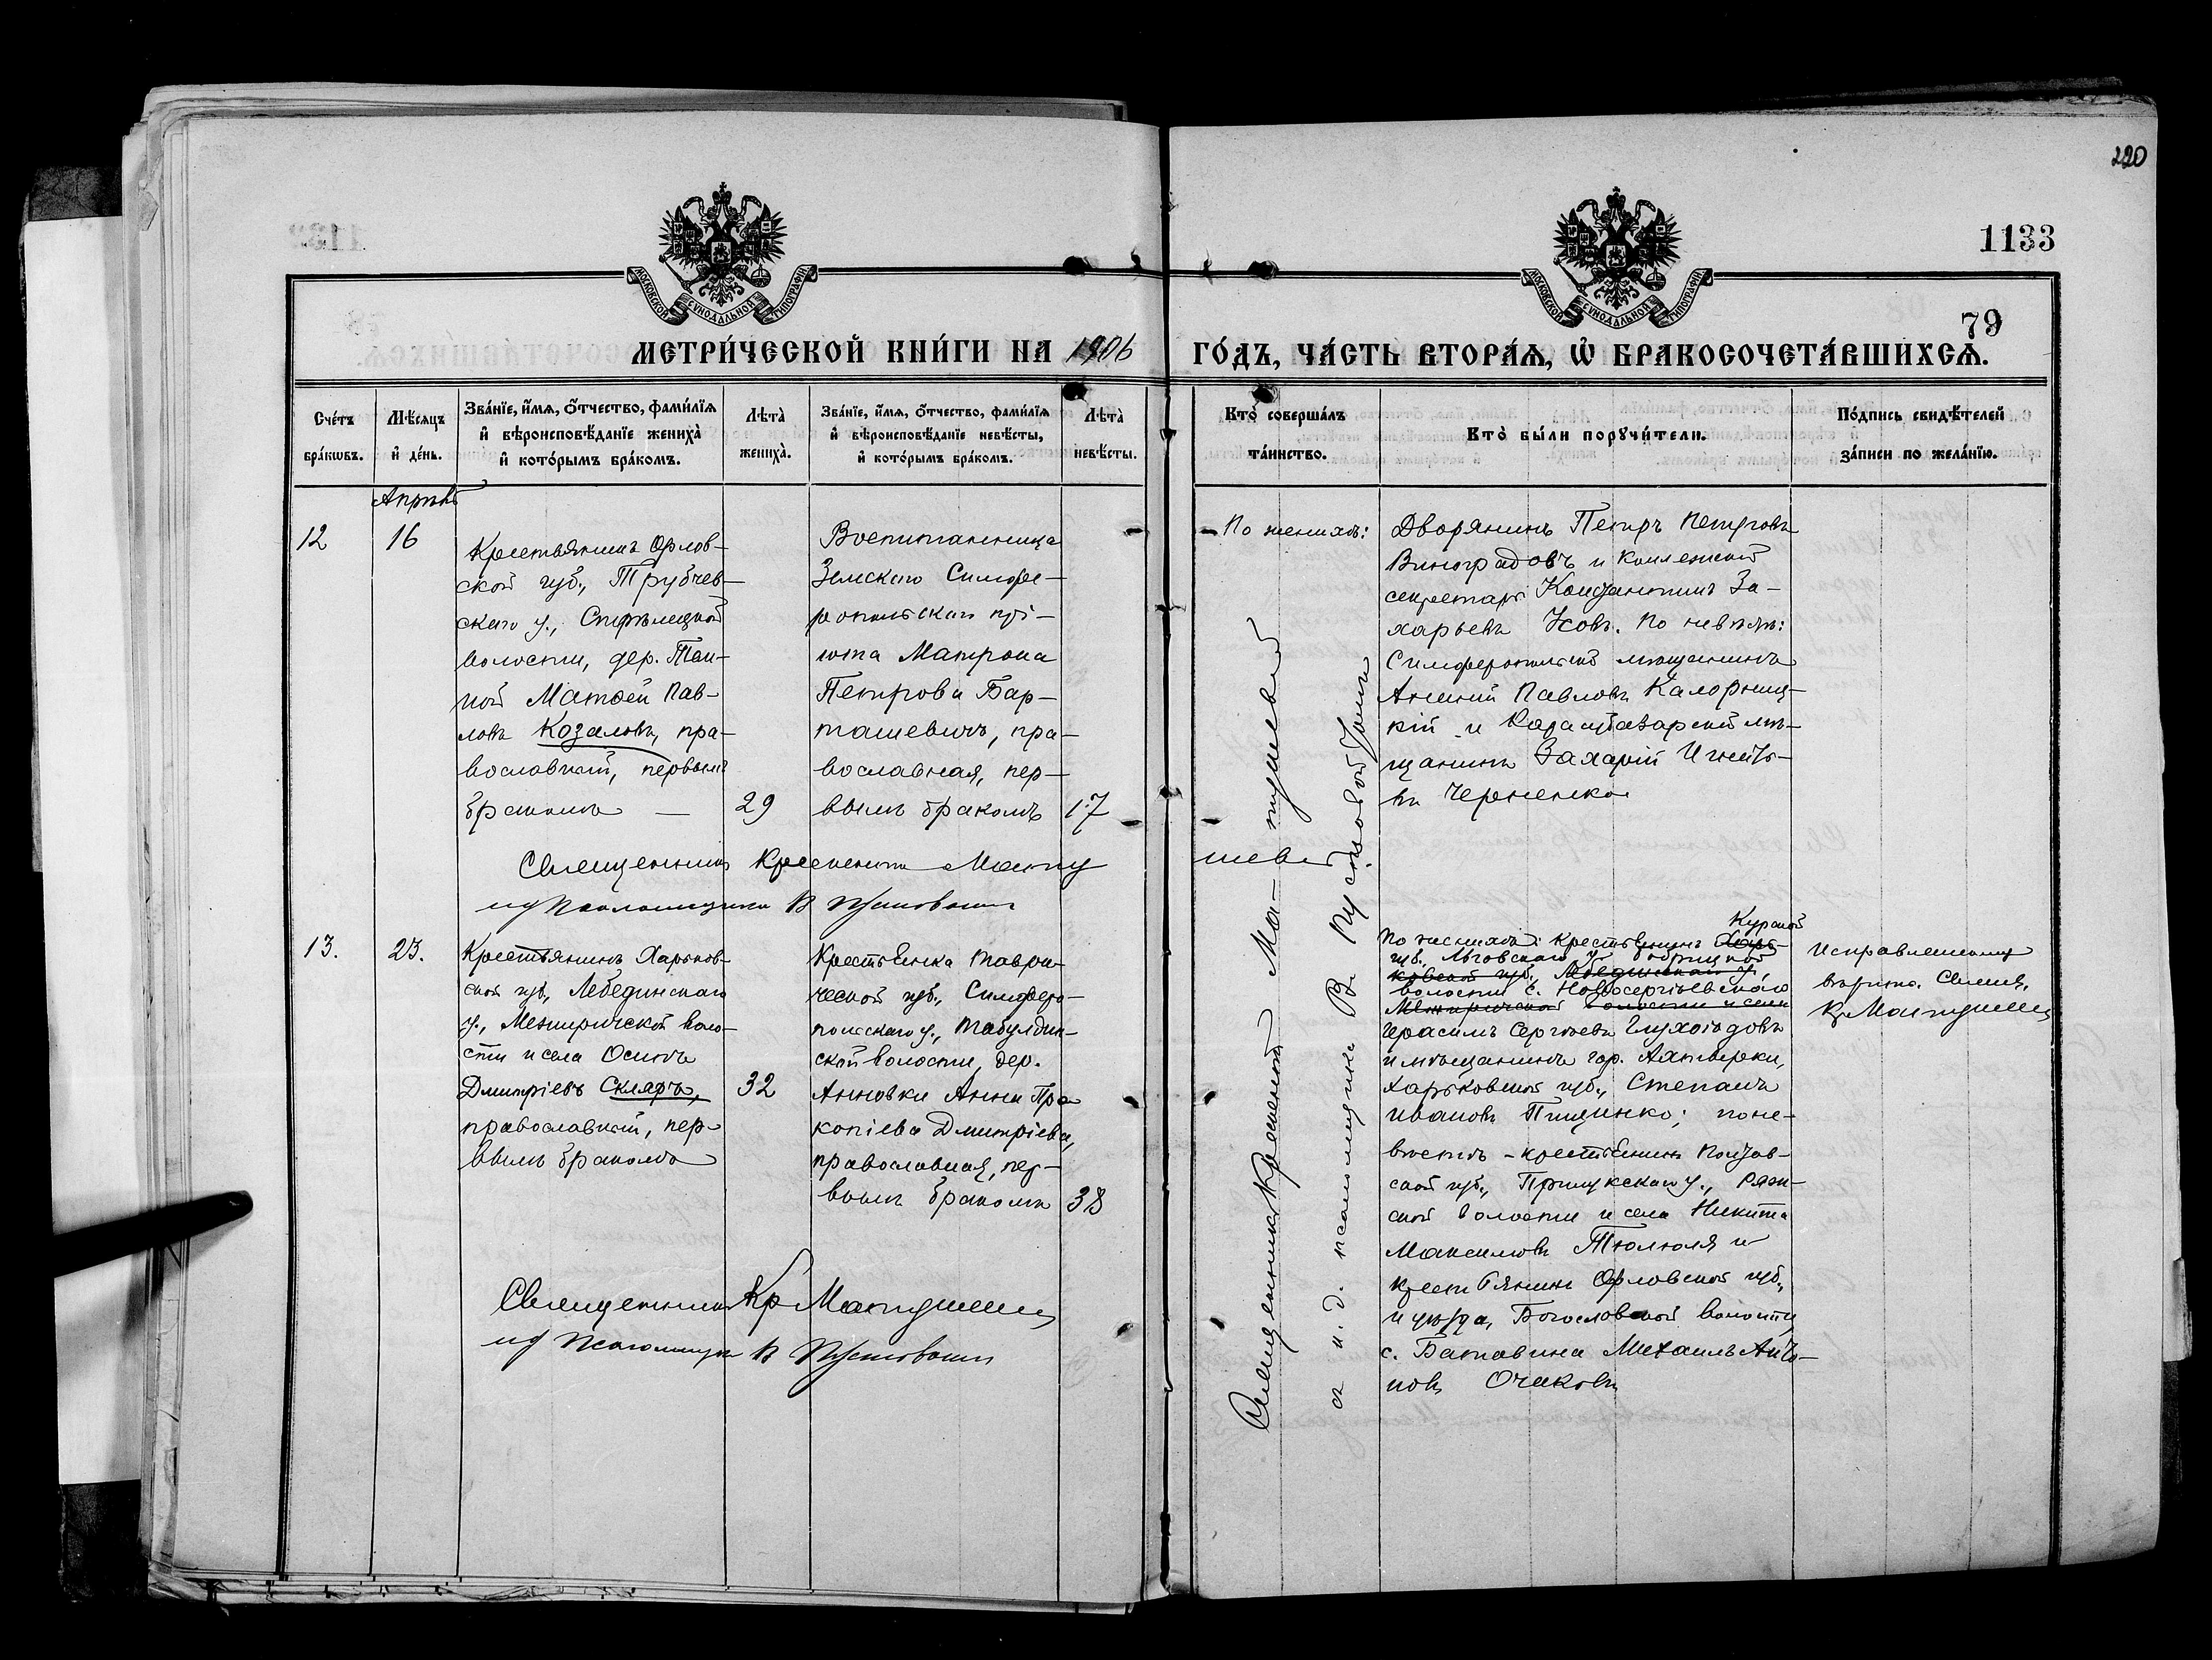 220
1133
79
МОСКОВСКОЙ СѴНОДАЛЬНОЙ ТИПОГРАФІИ
МОСКОВСКОЙ СѴНОДАЛЬНОЙ ТИПОГРАФІИ
МЕТРИ́ЧЕСКОЙ КНИ́ГИ НА 1906 ГО́ДЪ, ЧА́СТЬ ВТОРА́Ѧ, Ѡ҆ БРАКОСОЧЕТА́ВШИХСѦ.
Сче́тъ бра́кѡвъ.
Мѣ́сѧцъ и҆ де́нь.
Зва́нїе, и҆́мѧ, ѻ҆́тчество, фами́лїѧ
и҆ вѣроисповѣ́данїе жениха̀
и҆ кото́рымъ бра́комъ.
Лѣта̀ жениха̀.
Зва́нїе, и҆́мѧ, ѻ҆́тчество, фами́лїѧ
и҆ вѣроисповѣ́данїе невѣ́сты,
и҆ кото́рымъ бра́комъ.
Лѣта̀ невѣ́сты.
Кто̀ соверша́лъ та́инство.
Кто̀ бы́ли порꙋчи́тели.
По́дпись свидѣ́телей за́писи по жела́нїю.
Апрѣль
12
16
Крестьянинъ Орлов-
ской губ., Трубчев-
скаго у., Стрѣлецкой
волости, дер.
Матѳей Пав-
ловъ Козаловъ, пра-
вославный, первымъ
бракомъ —
29
Воспитанница
Земскаго Симфе-
ропольскаго прі-
юта Матрона
Петрова Бар-
ташевичъ, пра-
вославная, пер-
вымъ бракомъ
17
По женихѣ:
Дворянинъ Петръ Петровъ
Виноградовъ и Коллежскій
секретарь Константинъ За-
харьевъ Усовъ. По невѣстѣ:
Симферопольскій мѣщанинъ
Павловъ
кій и Карасубазарскій мѣ-
щанинъ Захарій Игнатье-
въ Черненко
Священникъ Крискентъ Матушевъ
и д псаломщика В Пустовойтъ
13.
23.
Крестьянинъ Харьков-
ской губ., Лебединскаго
у., Межиричской воло-
сти и села Осипъ
Дмитріевъ Скляръ,
православный, пер-
вымъ бракомъ
32
Крестьянка Таври-
ческой губ., Симферо-
польскаго у., Табулдин-
ской волости, дер.
Анновки Анна Про-
копіева Дмитріева,
православная, пер-
вымъ бракомъ
38
Священникъ Кр Матушевъ
и д Псаломщика В Пустовойтъ
Священникъ Крискентъ Ма-тушевъ
съ и. д. псаломщика В. Пустовойтомъ
Курской
По женихѣ: крестьянинъ Харь-
губ. Льговскаго у.
ковской губ., Лебединскаго у.,
волости с. Новосергіевскаго
Межиричской волости и села
Герасимъ Сергѣевъ Глухоѣдовъ
и мѣщанинъ гор. Ахтырки,
Харьковской губ., Степанъ
Ивановъ Пищинко; по не-
вѣстѣ - крестьянинъ Полтав-
ской губ., Прилукскаго у., Ряж-
ской волости и села Никита
Максимовъ Тюлюля и
крестьянинъ Орловской губ.,
и уѣзда, Богословской волости,
с. Баклавина Михаилъ Анто-
новъ Очаковъ
Исправленному
вѣрить. Священ.
Кр Матушевъ